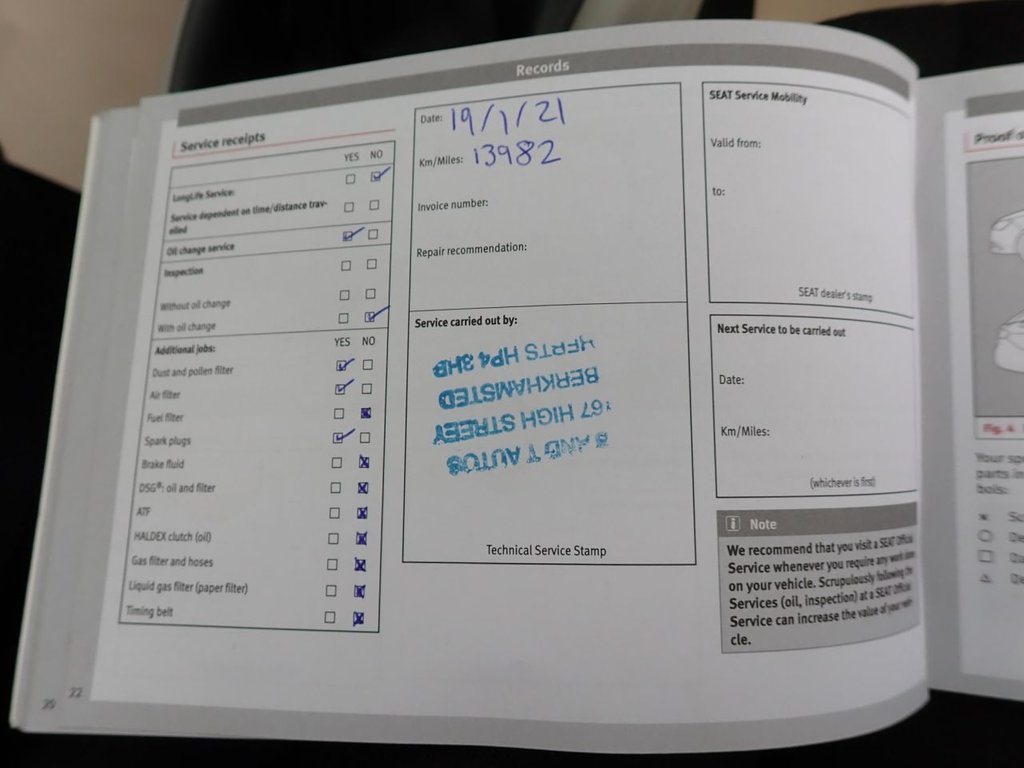 Records
Service receipts
YES NO
LongLife Service:
Service dependent on time/distance trav-
elled
Oil change service
Inspection
Without oil change
With oil change
Additional jobs: YES NO
Dust and pollen filter
Air filter
Fuel filter
Spark plugs
Brake fluid
DSG®: oil and filter
ATF
HALDEX clutch (oil)
Gas filter and hoses
Liquid gas filter (paper filter)
Timing belt
20 22
Date: 19/1/21
Km/Miles: 13982
Invoice number:
Repair recommendation:
Service carried out by:
AND T AUTOS
67 HIGH STREET
BERKHAMSTED
HERTS HP4 3HB
Technical Service Stamp
SEAT Service Mobility
Valid from:
to:
SEAT dealer's stamp
Next Service to be carried out
Date:
Km/Miles:
(whichever is first)
i Note
We recommend that you visit a SEAT Official
Service whenever you require any work done
on your vehicle. Scrupulously following the
Services (oil, inspection) at a SEAT Official
Service can increase the value of your vehi-
cle.
Fig. 4
Your
parts in